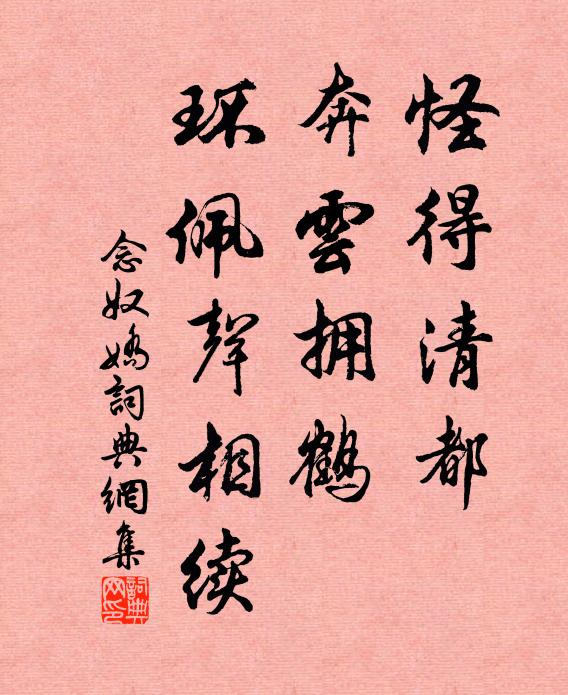 怪得清都
奔雲拥鶴
环佩聲相续
念奴嬌詞典網集
詞典网印